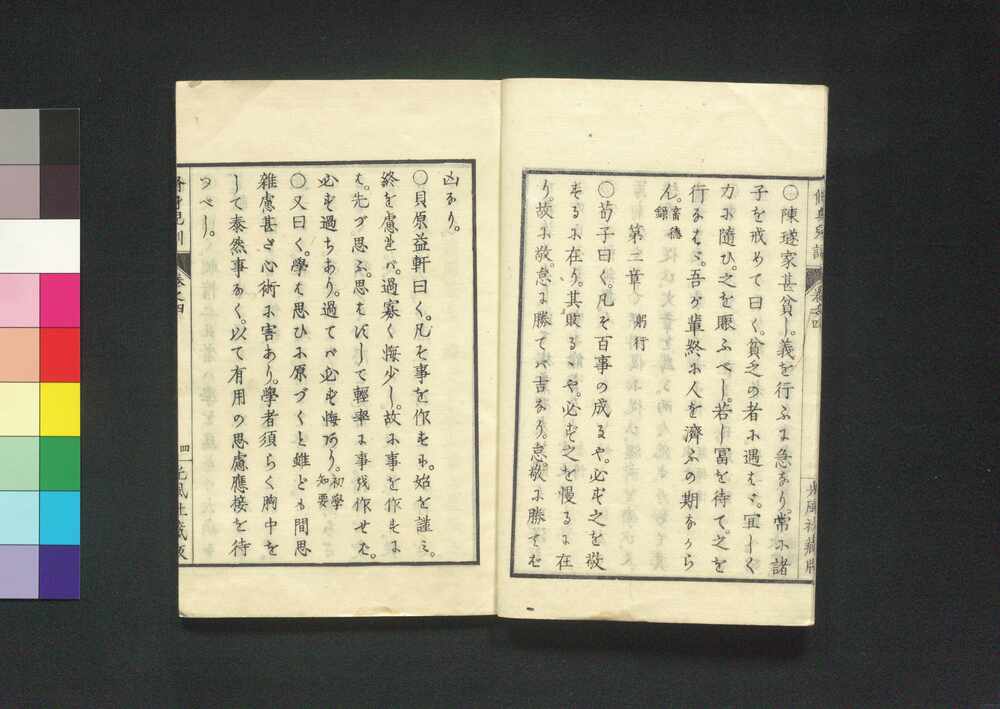 〇陳遂家甚貧し。義を行ふに急なり。常に諸
子を戒めて曰く。貧乏の者に遇はゞ。宜しく
力に隨ひ。之を賑ふべし。若し富を待て。之を
行はゞ。吾が輩終に人を濟ふの期なから
ん。畜德錄
第三章 躬行
〇荀子曰く。凡そ百事の成るや。必ず之を敬
するに在り。其敗るゝや。必ず之を慢るに在
り。故に敬。怠に勝てバ吉なり。怠。敬に勝てば
凶なり。
〇貝原益軒曰く。凡そ事を作すに。始を謹み。
終を慮れバ。過寡く悔少し。故に事を作すに
は。先づ思ふ。思はずして輕率に事を作せば。
必ず過ちあり。過てバ必ず悔あり。初學知要
〇又曰く。學は思ひに原づくと雖ども間思
雜慮甚だ心術に害あり。學者須らく胸中を
して泰然事なく。以て有用の思慮應接を待
つべし。
卷之四
四